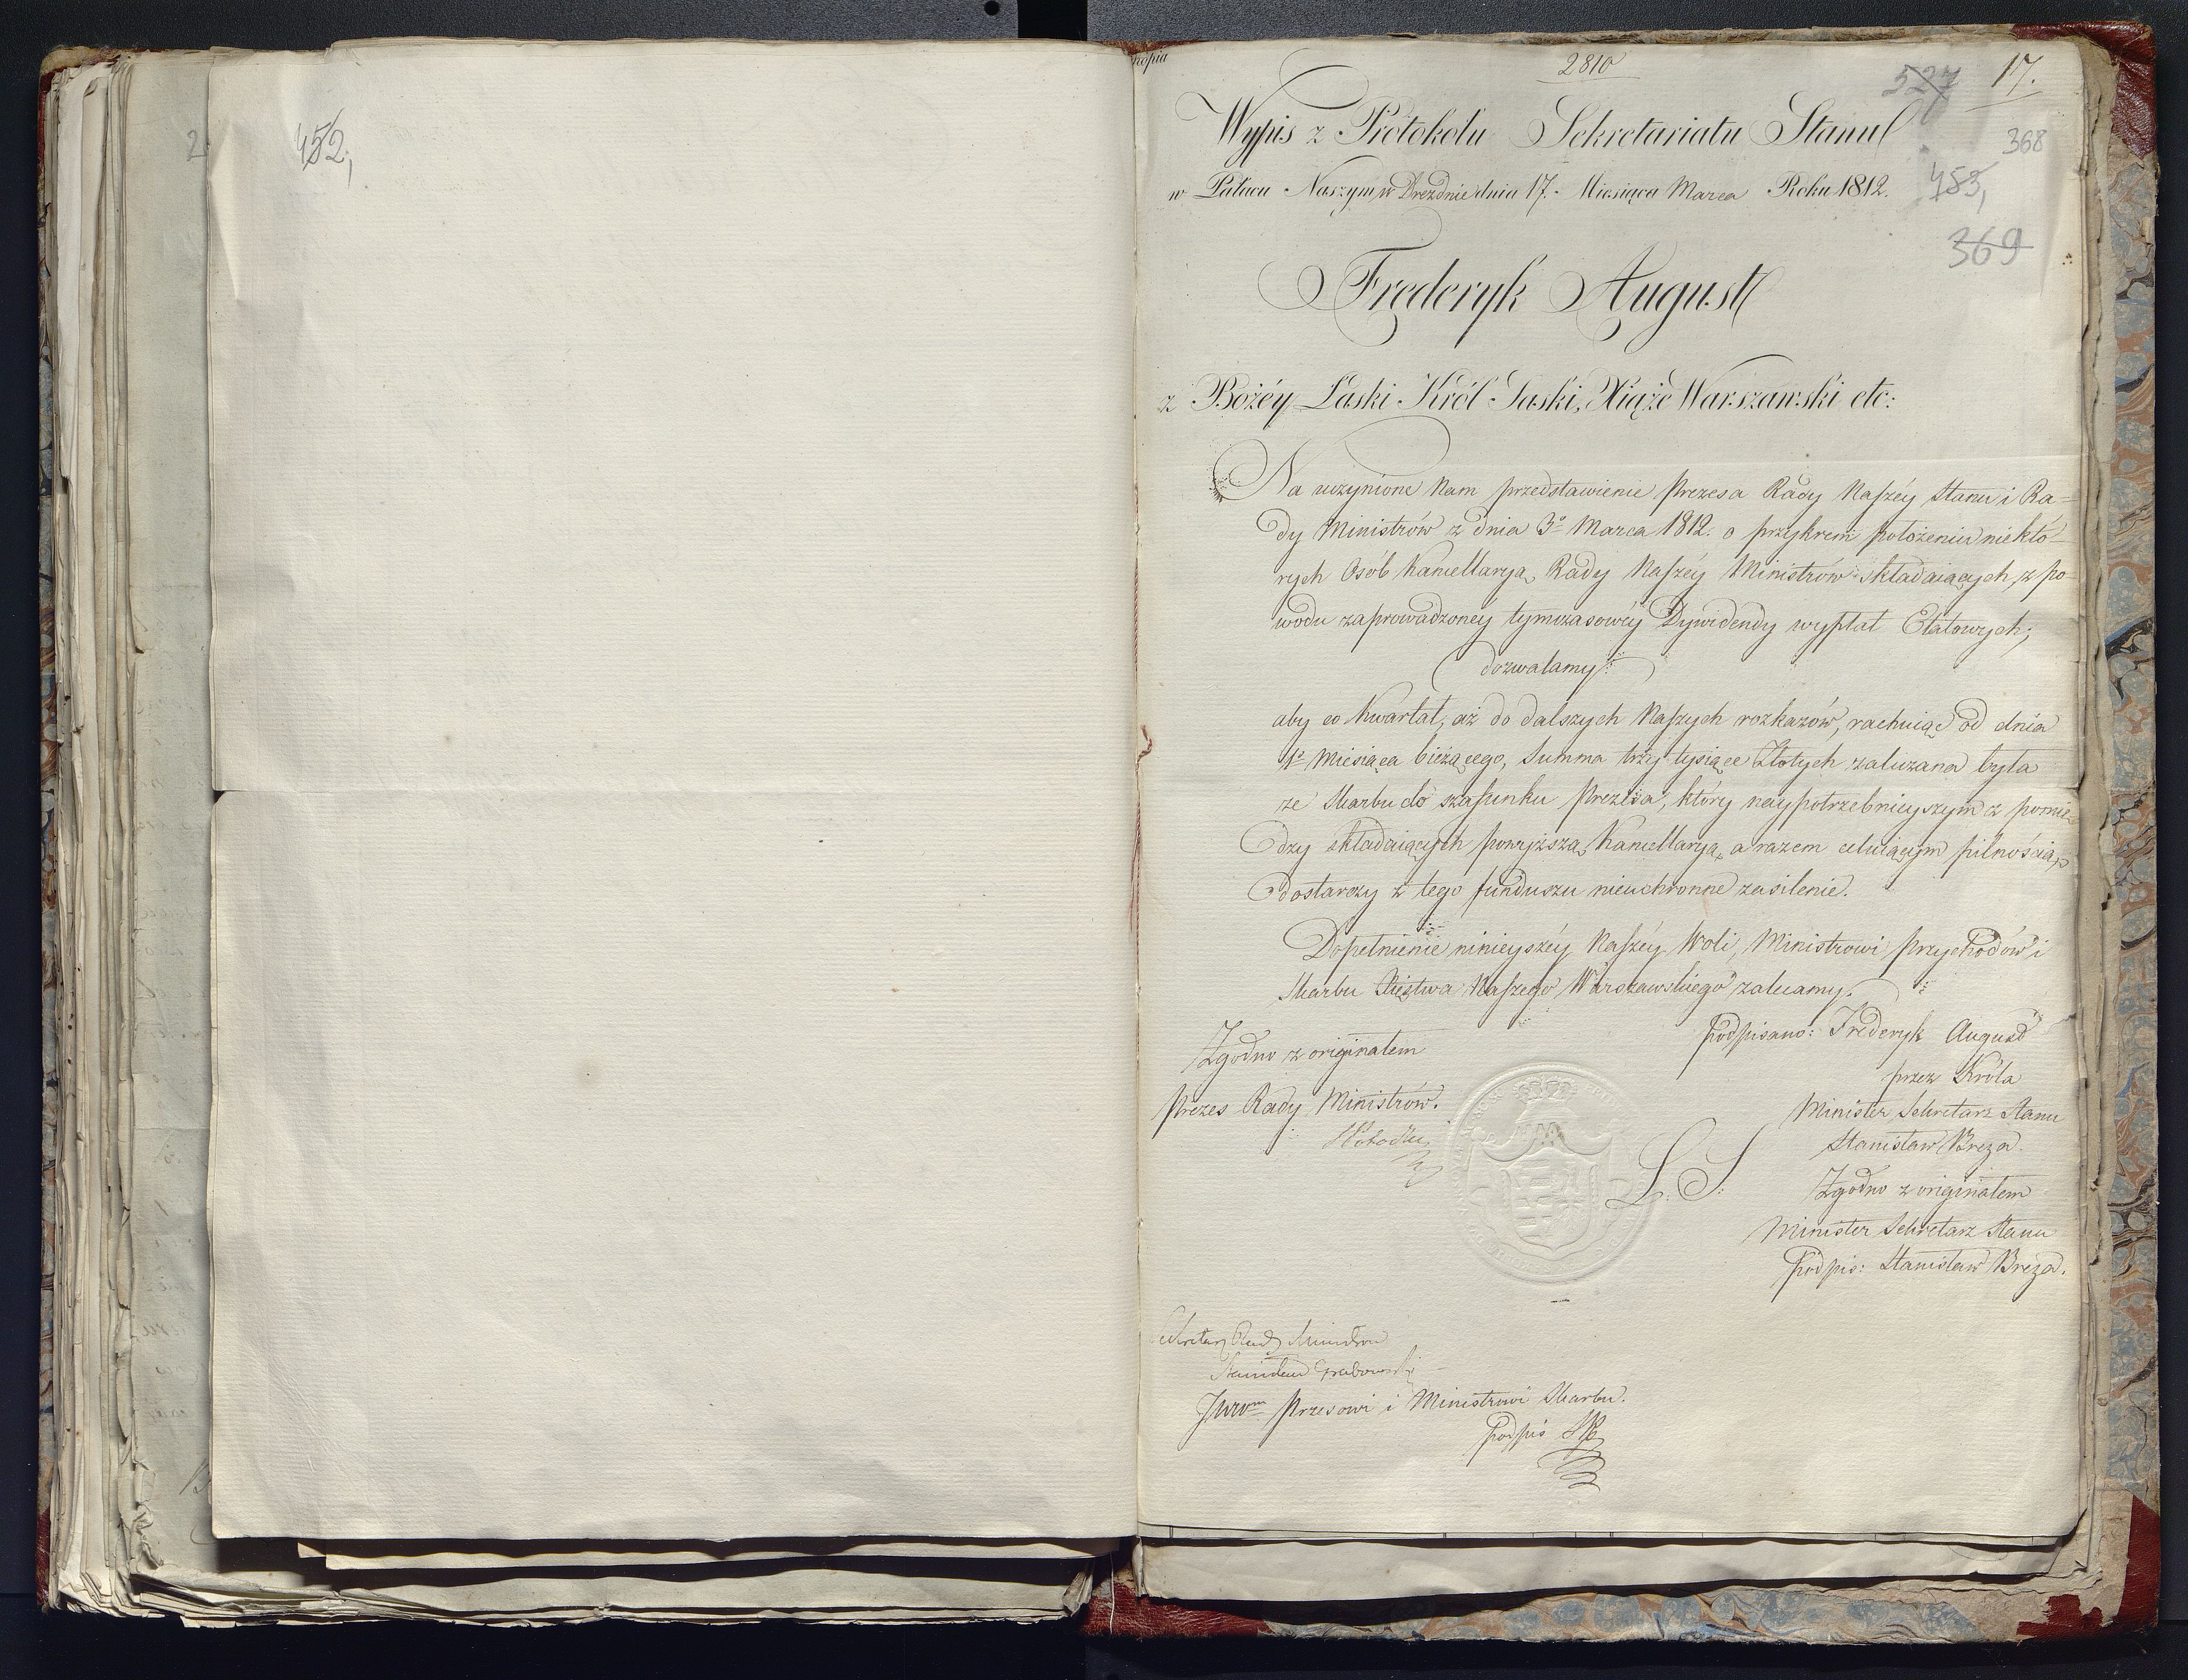 452,
kopia
2810
527
17.
368
Wypis z Protokołu Sekretariatu Stanu
w Pałacu Naszym w Dreżdnie dnia 17. Miesiąca Marca Roku 1812.
453,
369
Frederyk August
z Bożéy Łaski Król Saski, Xiąże Warszawski etc:
Na uczynione Nam przedstawienie Prezesa Rady Naszéy Stanu i Ra=
dy Ministrów z dnia 3º Marca 1812. o przykrem położeniu niektó=
rych Osób Kancellaryą Rady Naszéy Ministrów składaiących, z po=
wodu zaprowadzoney tymczasowéy Dywidendy wypłat Etatowych;
dozwalamy:
aby co Kwartał, aż do dalszych Naszych rozkazów, rachuiąc od dnia
1º Miesiąca bieżącego, Summa trzy tysiące Złotych zaliczana była
ze Skarbu do szafunku Prezesa, który naypotrzebnieyszym z pomię=
dzy składaiących powyższą Kancellaryą, a razem celuiącym pilnością,
dostarczy z tego funduszu nieuchronne zasilenie.
Dopełnienie ninieyszéy Naszéy Woli, Ministrowi Przychodów i
Skarbu Xięstwa Naszego Warszawskiego zalecamy.
Zgodno z originałem
Podpisano: Frederyk August
przez Króla
Prezes Rady Ministrów.
Minister Sekretarz Stanu
L. S.
Stanisław Breza.
Zgodno z originałem
Minister Sekretarz Stanu
Podpis: Stanisław Breza.
Sekretarz Rady Ministrów
Stanisław Grabowski
Prezesowi i Ministrowi Skarbu.
Podpis